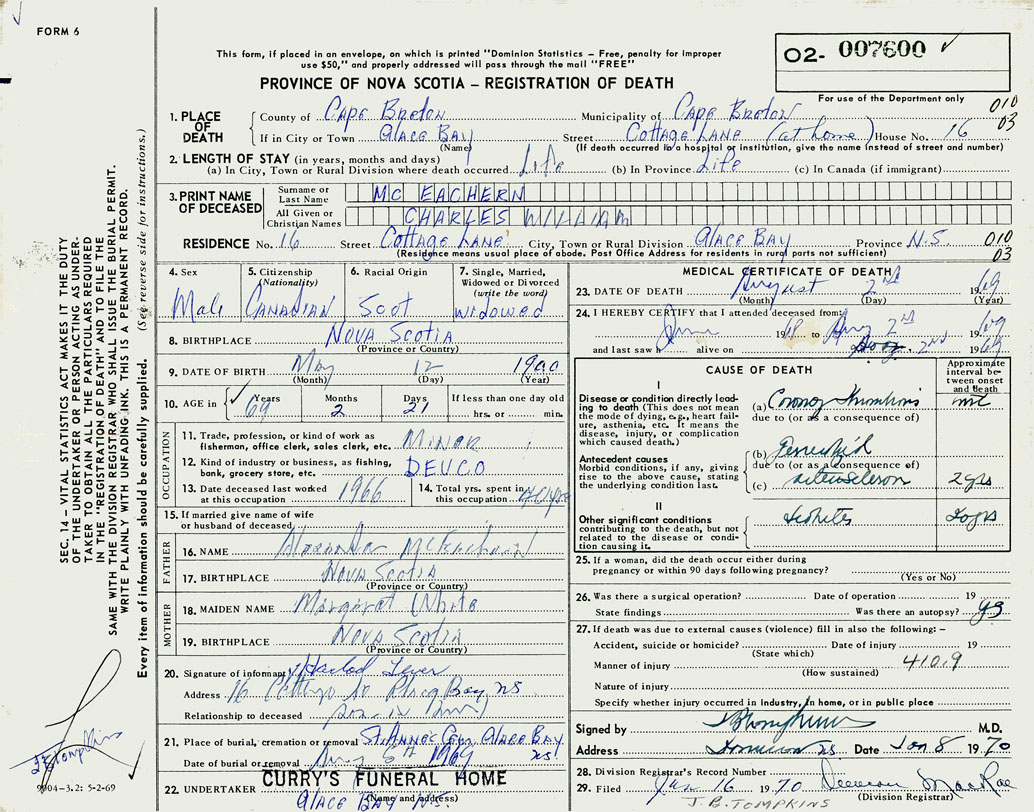 FORM 6
This form, if placed in an envelope, on which is printed "Dominion Statistics – Free, penalty for improper
use $50," and properly addressed will pass through the mail "FREE"
O2- 007600
PROVINCE OF NOVA SCOTIA – REGISTRATION OF DEATH
For use of the Department only
010
03
1. PLACE OF DEATH
County of Cape Breton Municipality of Cape Breton
If in City or Town Glace Bay Street Cottage Lane (at home) House No. 16
(Name) (If death occurred in a hospital or institution, give the name instead of street and number)
2. LENGTH OF STAY (in years, months and days)
(a) In City, Town or Rural Division where death occurred Life (b) In Province Life (c) In Canada (if immigrant)
3. PRINT NAME OF DECEASED
Surname or Last Name MC EACHERN
All Given or Christian Names CHARLES WILLIAM
RESIDENCE No. 16 Street Cottage Lane City, Town or Rural Division Glace Bay Province N.S. 010
03
(Residence means usual place of abode. Post Office Address for residents in rural parts not sufficient)
4. Sex Male
5. Citizenship (Nationality) Canadian
6. Racial Origin Scot
7. Single, Married, Widowed or Divorced (write the word) Widowed
8. BIRTHPLACE Nova Scotia
(Province or Country)
9. DATE OF BIRTH May 12 1900
(Month) (Day) (Year)
10. AGE in Years 69 Months 2 Days 21 If less than one day old hrs. or min.
OCCUPATION
11. Trade, profession, or kind of work as fisherman, office clerk, sales clerk, etc. Miner
12. Kind of industry or business, as fishing, bank, grocery store, etc. DEVCO
13. Date deceased last worked at this occupation 1966
14. Total yrs. spent in this occupation
15. If married give name of wife or husband of deceased
FATHER
16. NAME Alexander McEachern
17. BIRTHPLACE Nova Scotia
(Province or Country)
MOTHER
18. MAIDEN NAME Margaret White
19. BIRTHPLACE Nova Scotia
(Province or Country)
20. Signature of informant
Address 16 Glace Bay NS
Relationship to deceased
21. Place of burial, cremation or removal St Anne's Cem Glace Bay
Date of burial or removal 1969 NS
22. UNDERTAKER CURRY'S FUNERAL HOME
(Name and address)
Glace Bay NS
MEDICAL CERTIFICATE OF DEATH
23. DATE OF DEATH August 2nd 1969
(Month) (Day) (Year)
24. I HEREBY CERTIFY that I attended deceased from:
June 19 to Aug 2nd 1969
and last saw h alive on 2nd 1969
CAUSE OF DEATH
Approximate interval between onset and death
I
Disease or condition directly leading to death (This does not mean the mode of dying, e.g., heart failure, asthenia, etc. It means the disease, injury, or complication which caused death.)
(a)
due to (or as a consequence of)
Antecedent causes
Morbid conditions, if any, giving rise to the above cause, stating the underlying condition last.
(b)
due to (or as a consequence of)
(c) 2 yrs
II
Other significant conditions contributing to the death, but not related to the disease or condition causing it.
25. If a woman, did the death occur either during
pregnancy or within 90 days following pregnancy?
(Yes or No)
26. Was there a surgical operation? Date of operation 19
State findings Was there an autopsy? yes
27. If death was due to external causes (violence) fill in also the following: –
Accident, suicide or homicide? Date of injury 19
(State which)
Manner of injury 410.9
(How sustained)
Nature of injury
Specify whether injury occurred in industry, in home, or in public place
Signed by M.D.
Address Dominion NS Date Jan 8 1970
28. Division Registrar's Record Number
29. Filed Jan 16 1970 MacRae
(Division Registrar)
J.B. TOMPKINS
SEC. 14 – VITAL STATISTICS ACT MAKES IT THE DUTY
OF THE UNDERTAKER OR PERSON ACTING AS UNDER-
TAKER TO OBTAIN ALL THE PARTICULARS REQUIRED
IN THE "REGISTRATION OF DEATH" AND TO FILE THE
SAME WITH THE DIVISION REGISTRAR WHO SHALL ISSUE THE BURIAL PERMIT.
WRITE PLAINLY WITH UNFADING INK. THIS IS A PERMANENT RECORD.
Every item of information should be carefully supplied. (See reverse side for instructions.)
Tompkins
9904–3.2: 5-2-69